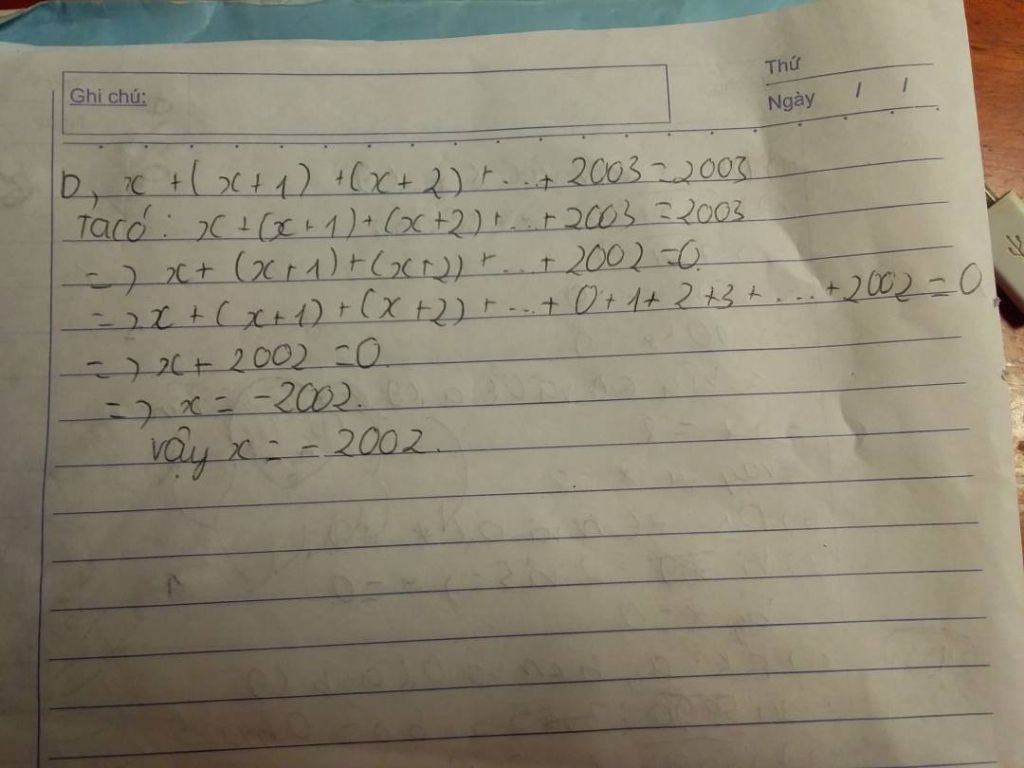 Thứ
Ghi chú:
Ngày / /
D, x + (x + 1) + (x + 2) + ... + 2003 = 2003
Ta có: x + (x + 1) + (x + 2) + ... + 2003 = 2003
=> x + (x + 1) + (x + 2) + ... + 2002 = 0.
=> x + (x + 1) + (x + 2) + ... + 0 + 1 + 2 + 3 + ... + 2002 = 0
=> x + 2002 = 0.
=> x = -2002.
vậy x = -2002.